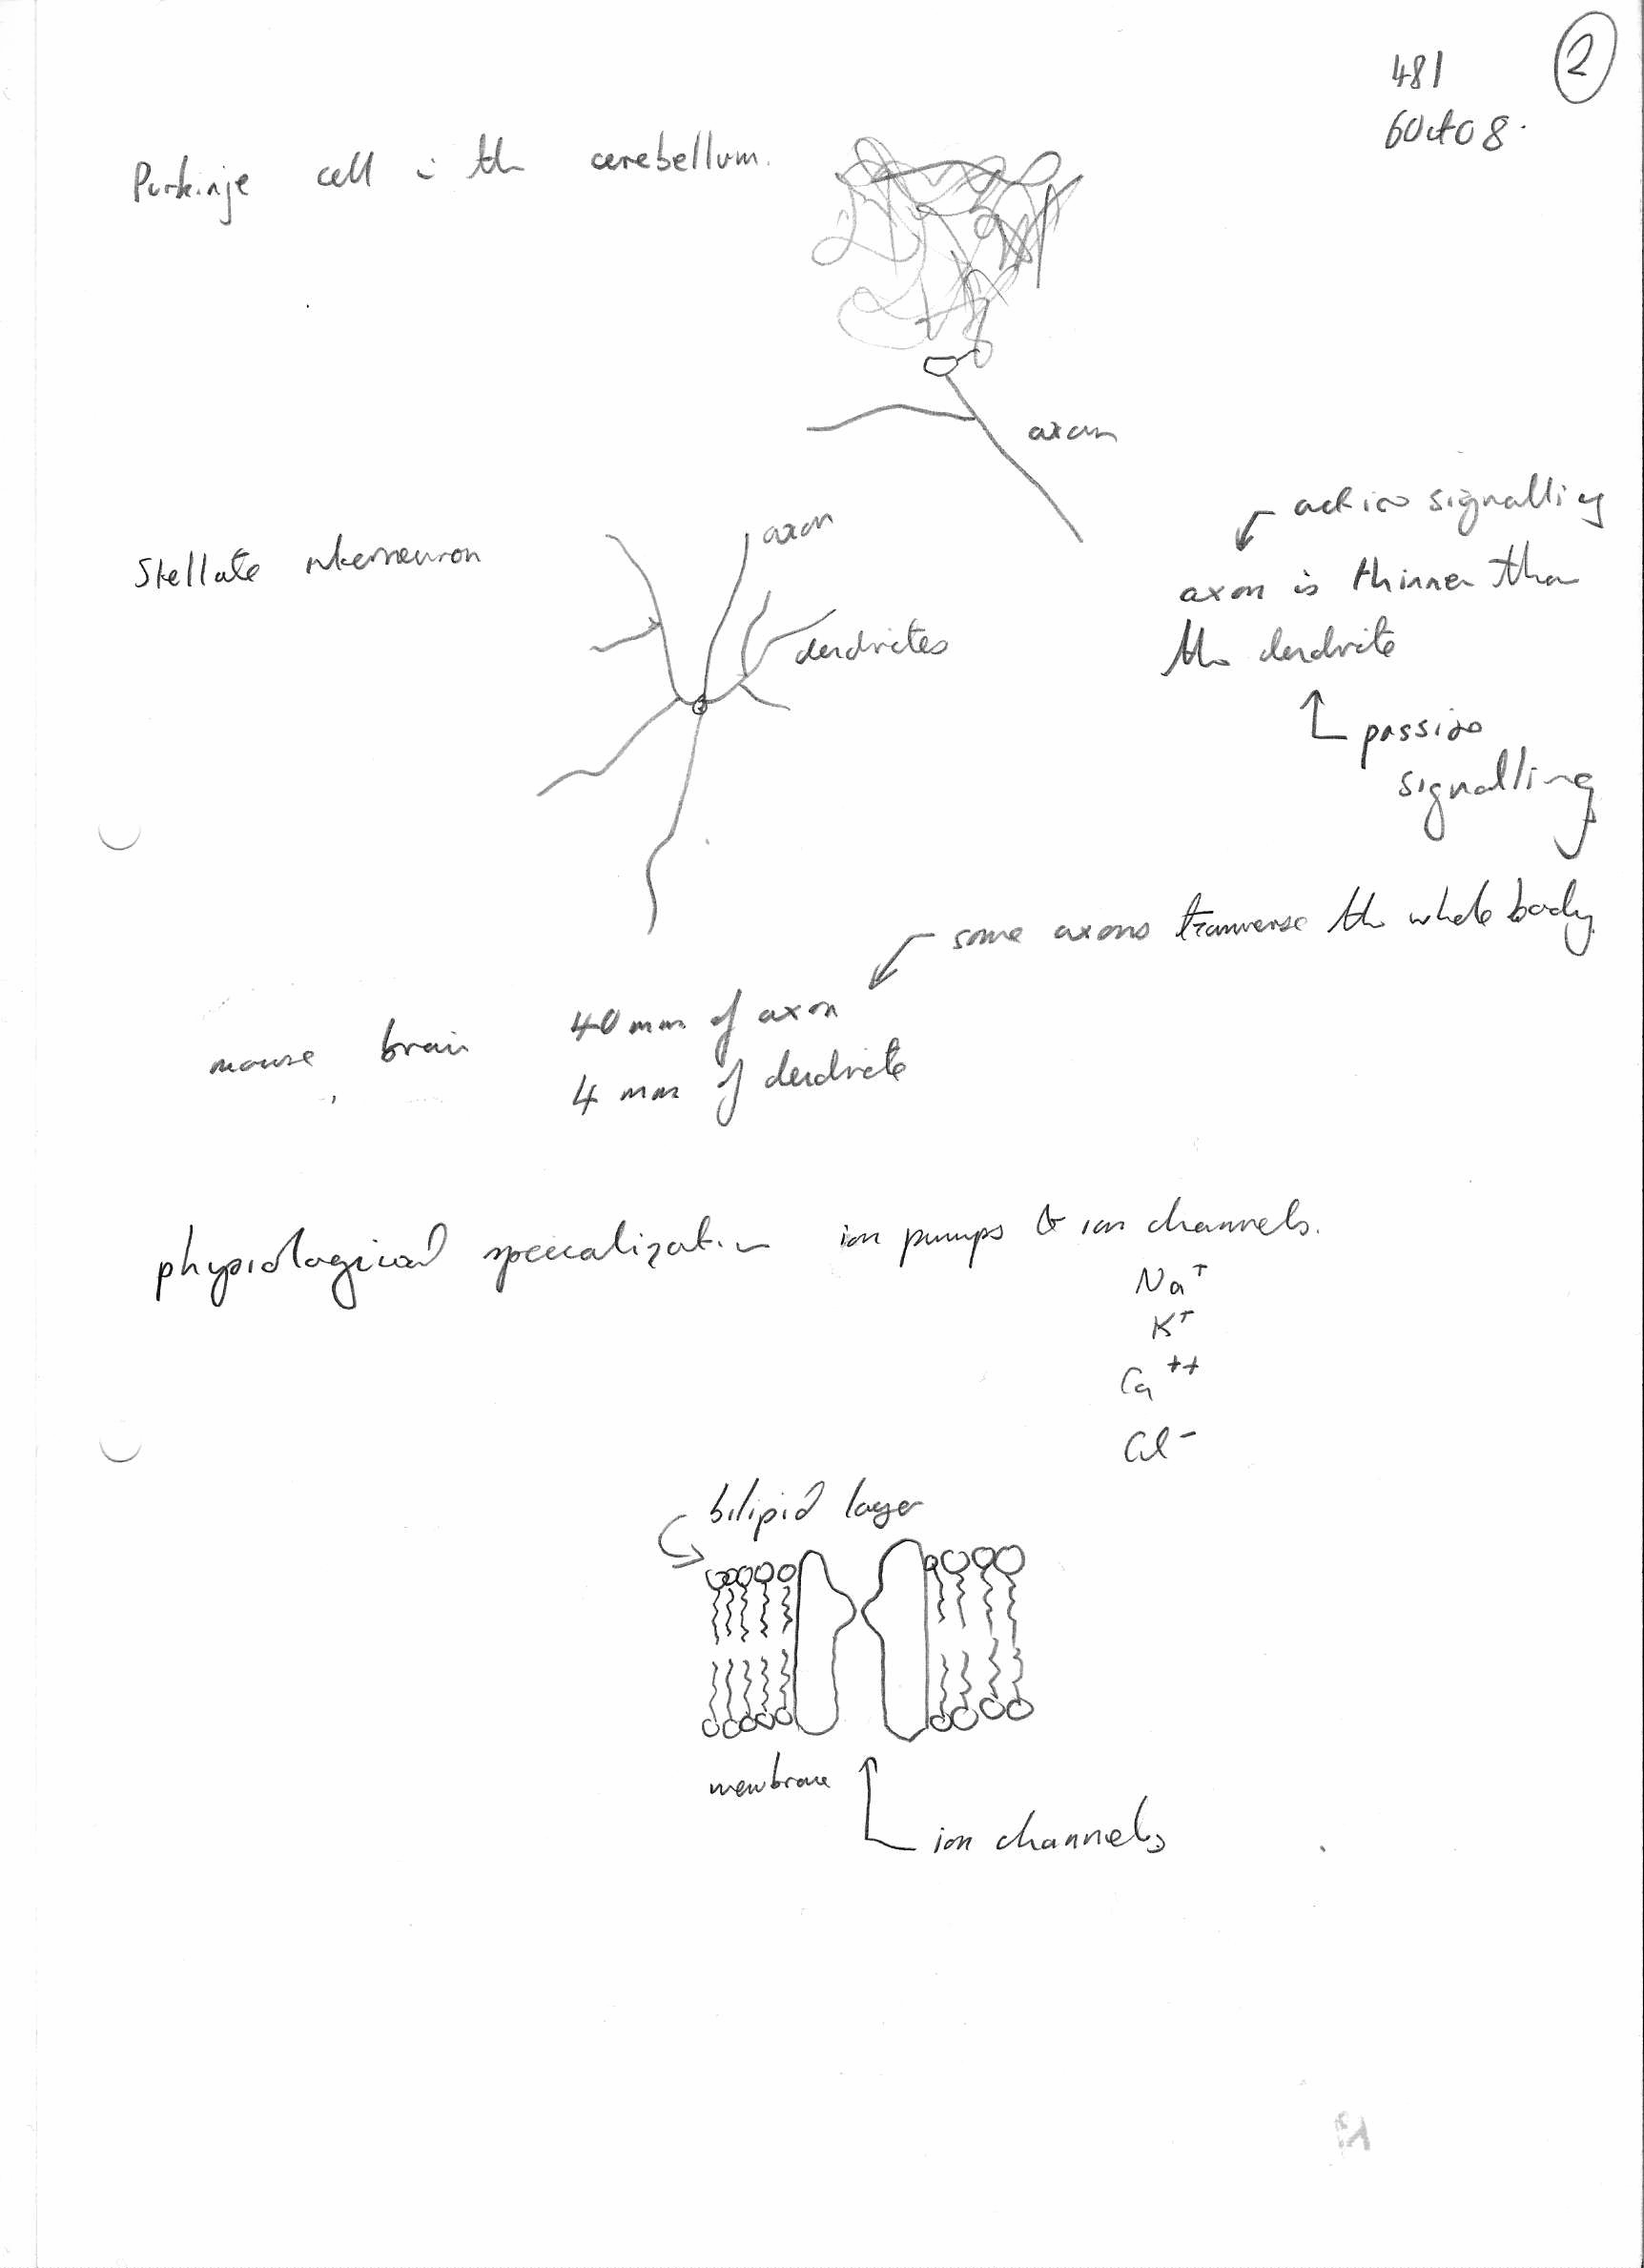 2
481
6Oct08.
Purkinje cell in the cerebellum.
axon
active signalling
axon is thinner than
the dendrite
passive
signalling
Stellate interneuron
axon
dendrites
some axons tranverse the whole body.
mouse brain
40 mm of axon
4 mm of dendrite
physiological specialization ion pumps & ion channels.
Na+
K+
Ca++
Cl-
bilipid layer
membrane
ion channels